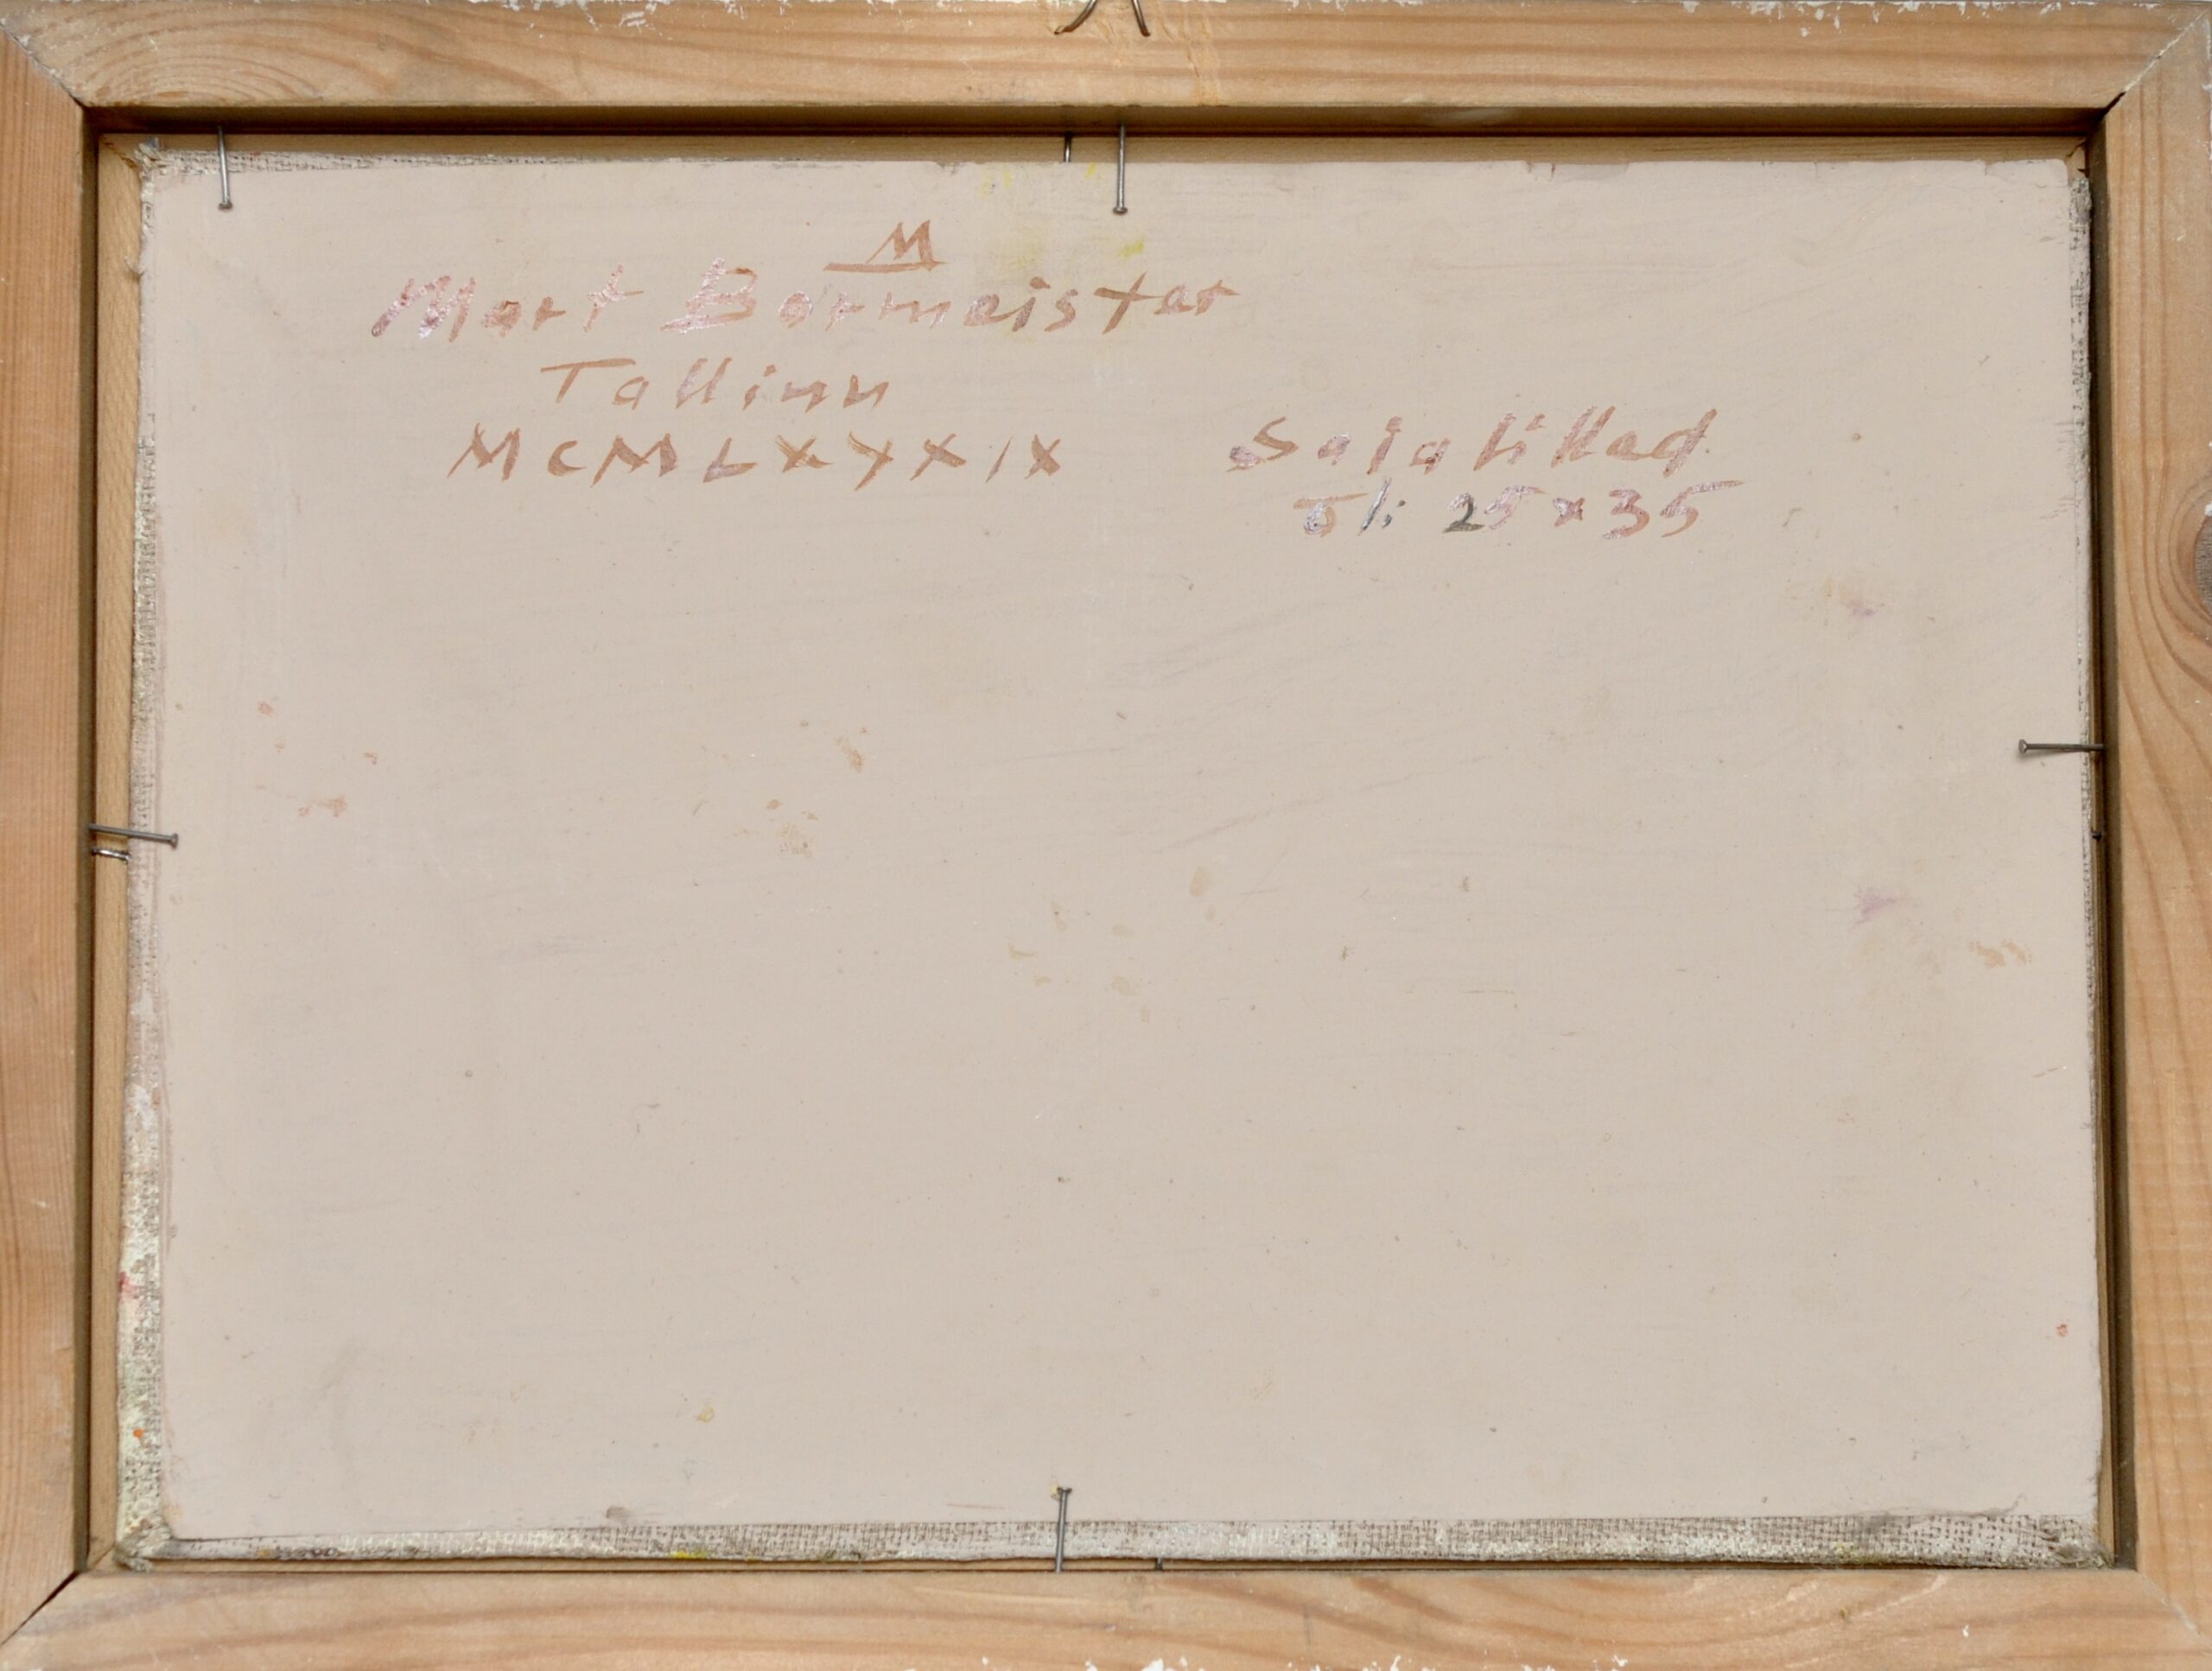 M
Mart Bormeister
Tallinn
MCMLXXXIX
Sajalilled
Õli 25x35